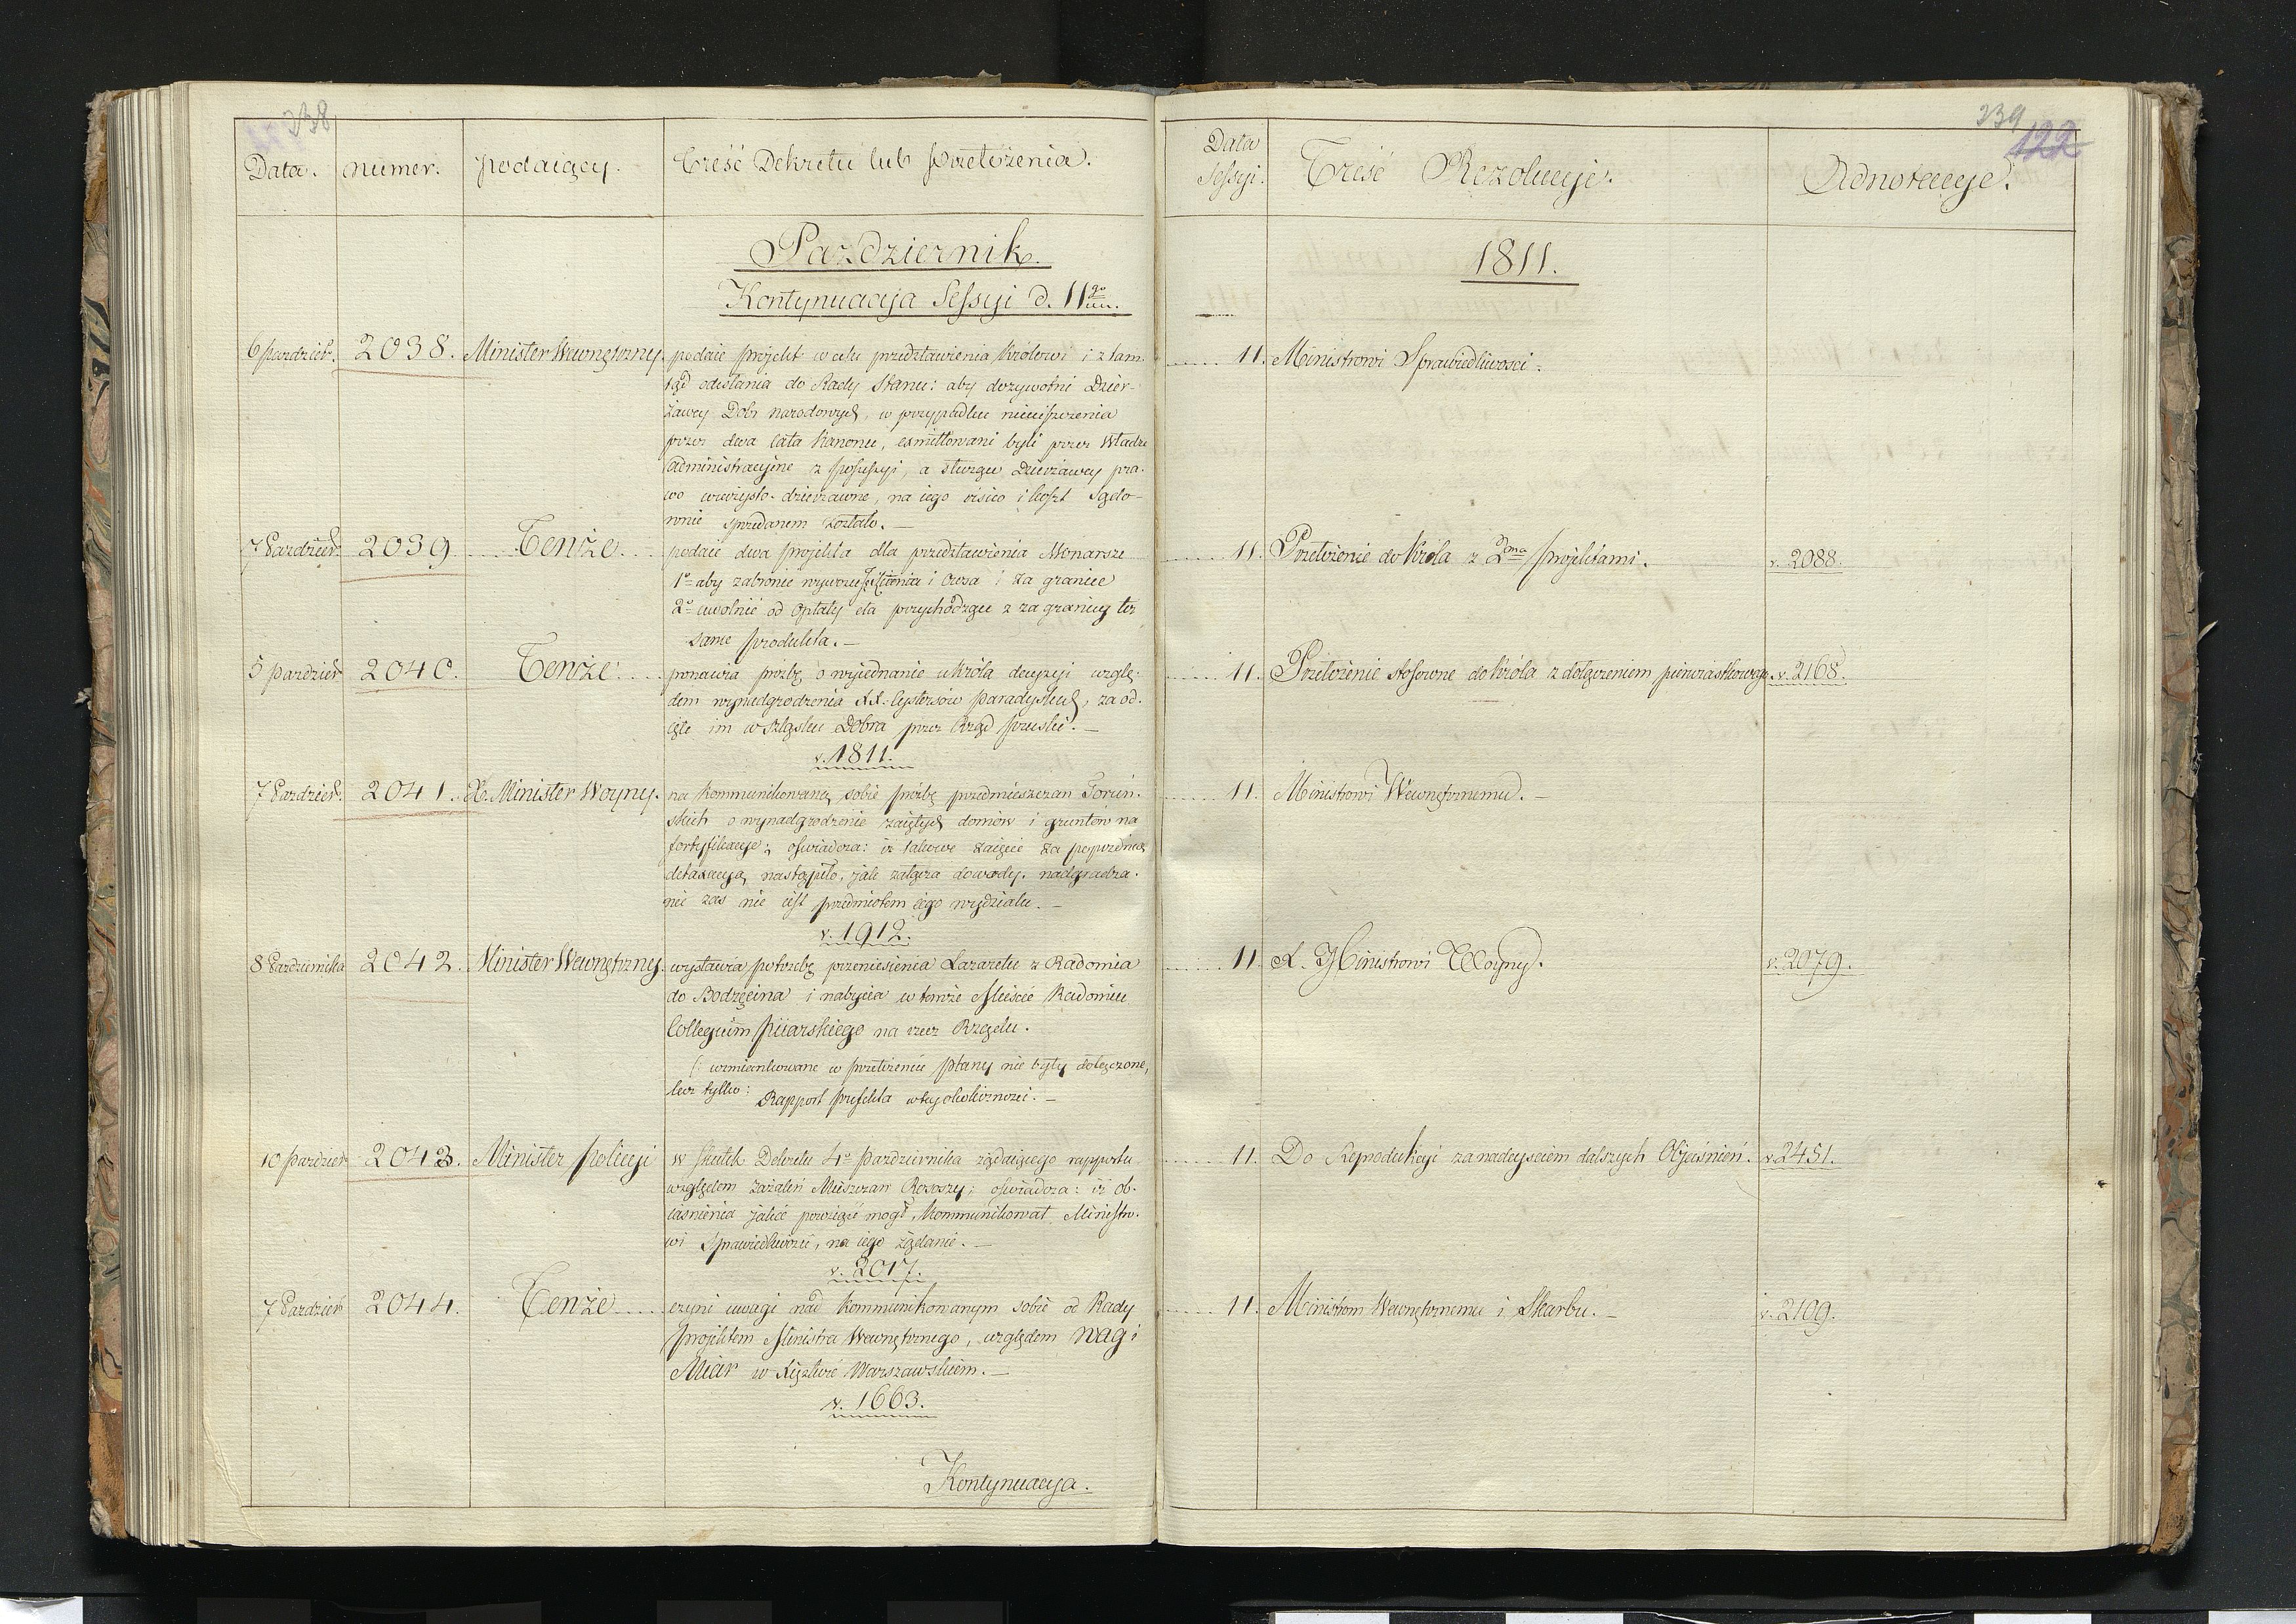 238
Data.
numer.
podaiący.
Treść Dekretu lub przełożenia.
Pazdziernik.
Kontynuacija Sessyi d. 11go
6 pazdzier.
2038.
Minister Wewnętrzny.
podaie projekt w celu przedstawienia Królowi i z tam-
tąd odesłania do Rady Stanu: aby dozywotni Dzier-
żawcy Dobr narodowych, w przypadku nieuiszczenia
przez dwa lata Kanonu, exmittowani byli przez Władze
administracyine z possessyi, a służące Dzierżawcy pra-
wo wieczysto-dzierżawne, na iego risico i koszt Sądo-
wnie sprzedanem zostało.—
7 Pazdzier.
2039
Tenże.
podaie dwa projekta dla przedstawienia Monarsze
1o aby zabronić wywozu Jęczmienia i Owsa i za granice
2o uwolnić od opłaty cła przychodzące z zagranicy też
same produkta.—
5 pazdzier
2040.
Tenże.
ponawia prozbę o wyiednanie u Króla decyzyi wzglę-
dem wynadgrodzenia XX. Cystersów Paradyskich, za od-
ięte im w Szląsku Dobra przez Rząd pruski.—
v. 1811.
7 Pazdzier.
2041.
X. Minister Woyny.
na kommunikowaną sobie prozbę przedmieszczan Toruń-
skich o wynadgrodzenie zaiętych domów i gruntów na
fortyfikacye; oświadcza: iż takowe zaięcie za poprzednią
detaxacyą nastąpiło, jak załącza dowody, nadgradza-
nie zas nie iest przedmiotem iego wydziału.—
v. 1912.
8 Pazdziernika
2042.
Minister Wewnętrzny.
wystawia potrzebę przeniesienia Lazaretu z Radomia
do Bodzęcina i nabycia w temże Mieście Radomiu
Collegium piiarskiego na rzecz Rządu.
(: wzmiankowane w przełożeniu plany nie były dołączone,
lecz tylko: Rapport prefekta w tey okoliczności.—
10 pazdzier
2043.
Minister policyi
w skutek Dekretu 4o Pazdziernika żądaiącego rapportu
względem zażaleń Mieszczan Rososzy; oświadcza: iż ob-
iaśnienia jakie powziąść mogł, kommunikował Ministro-
wi Sprawiedliwości, na iego żądanie.—
v. 2017.
7 Pazdzier
2044.
Tenże
czyni uwagi nad kommunikowanym sobie od Rady
projektem Ministra Wewnętrznego, względem wag i
Miar w Xięztwie Warszawskiem.—
v. 1663.
Kontynuacya.
239
122
Data
Sessyi.
Treść Rezolucyi.
Adnotacye.
1811.
11. Ministrowi Sprawiedliwosci.
11. Przełożenie do Króla z 2ma projektami.
v. 2088.
11. Przełożenie stosowne do Króla z dołączeniem pierwiastkowego
v. 2168.
11. Ministrowi Wewnętrznemu.—
11. X. Ministrowi Woyny.
v. 2079.
11. Do Reprodukcyi za nadeysciem dalszych Objaśnień.
v. 2451.
11. Ministrom Wewnętrznemu i Skarbu.—
v. 2109.